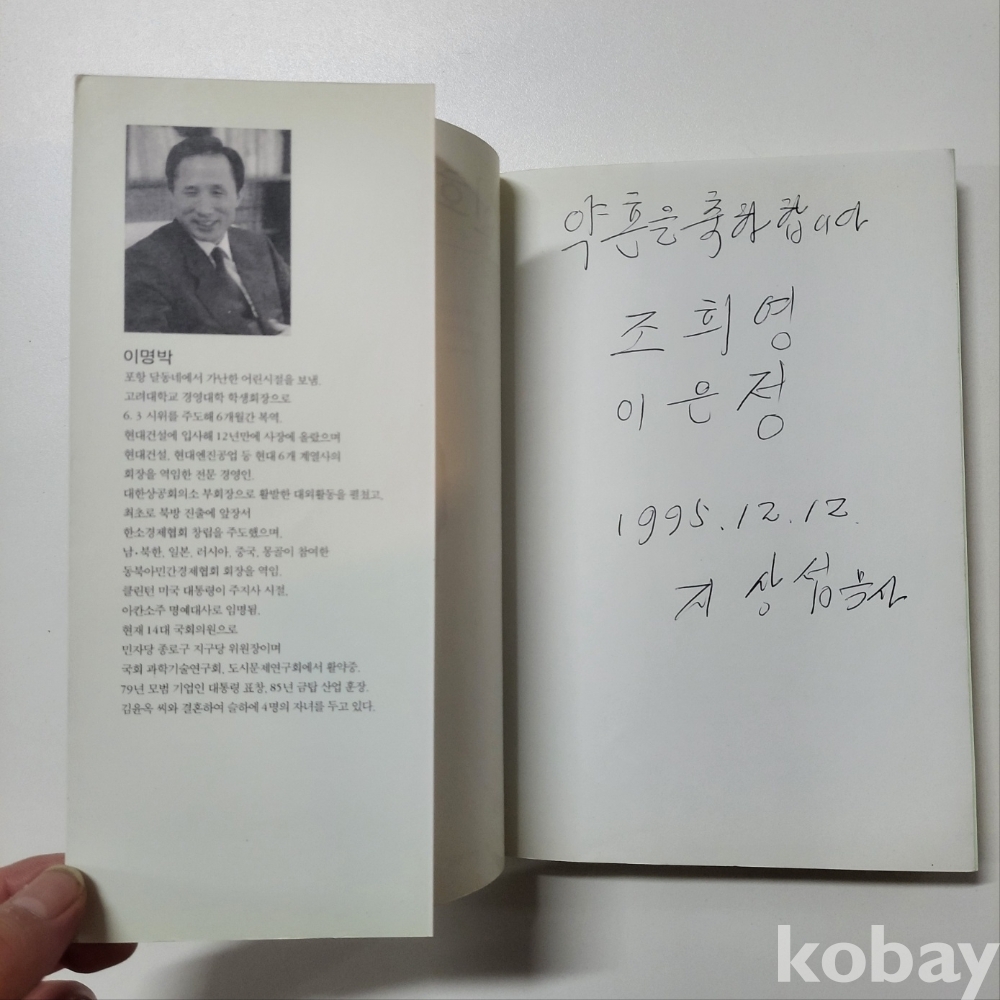 이명박
포항 달동네에서 가난한 어린시절을 보냄.
고려대학교 경영대학 학생회장으로
6. 3 시위를 주도해 6개월간 복역.
현대건설에 입사해 12년만에 사장에 올랐으며
현대건설, 현대엔진공업 등 현대 6개 계열사의
회장을 역임한 전문 경영인.
대한상공회의소 부회장으로 활발한 대외활동을 펼쳤고,
최초로 북방 진출에 앞장서
한소경제협회 창립을 주도했으며,
남·북한, 일본, 러시아, 중국, 몽골이 참여한
동북아민간경제협회 회장을 역임.
클린턴 미국 대통령이 주지사 시절,
아칸소주 명예대사로 임명됨.
현재 14대 국회의원으로
민자당 종로구 지구당 위원장이며
국회 과학기술연구회, 도시문제연구회에서 활약중.
79년 모범 기업인 대통령 표창, 85년 금탑 산업 훈장.
김윤옥 씨와 결혼하여 슬하에 4명의 자녀를 두고 있다.
약혼을 축하합니다
조희영
이은정
1995.12.12.
지상섭
kobay